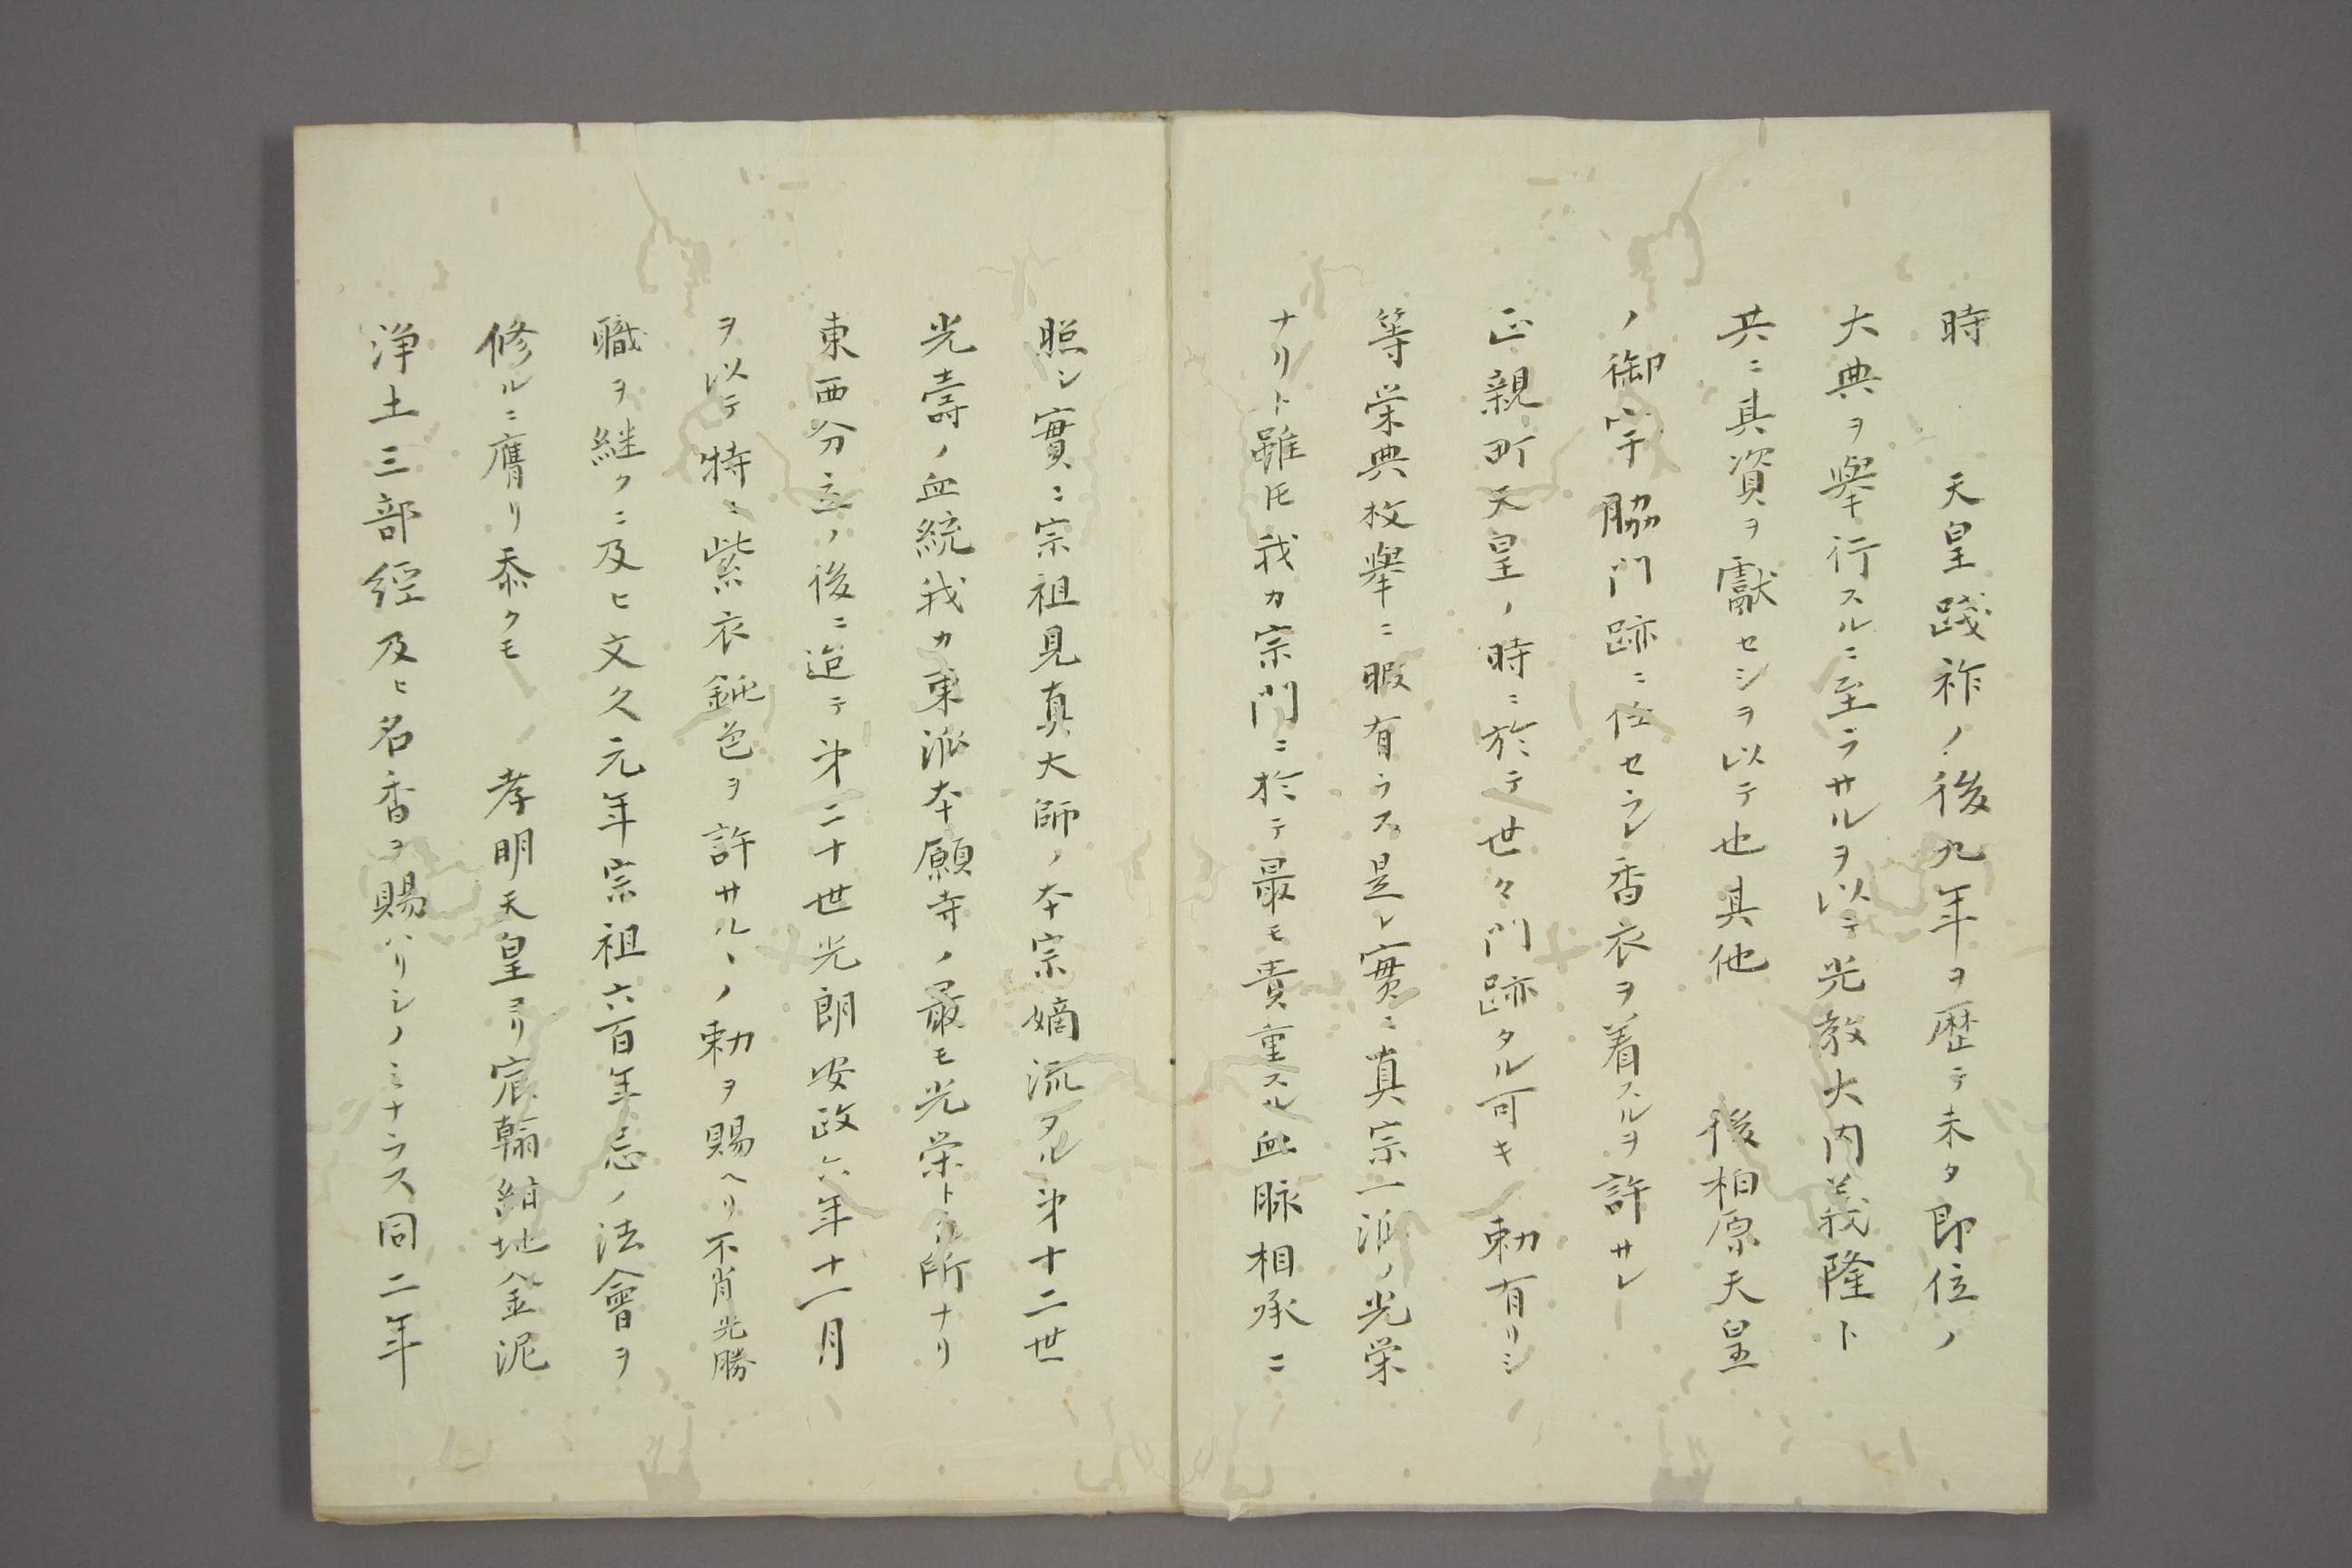 時　　天皇踐祚ノ後九年ヲ歴テ未タ即位ノ
大典ヲ擧行スルニ至ラサルヲ以テ光教大内義隆ト
共ニ其資ヲ獻セシヲ以テ也其他　　後柏原天皇
ノ御宇脇門跡ニ任セラレ香衣ヲ着スルヲ許サレ
正親町天皇ノ時ニ於テ世々門跡タル可キ　勅有リシ
等栄典枚擧ニ暇有ラス是レ實ニ真宗一派ノ光栄
ナリト雖𪜈我カ宗門ニ於テ最モ貴重スル血脉相承ニ
照シ實ニ宗祖見真大師ノ本宗嫡流タル第十二世
光壽ノ血統我カ東派本願寺ノ最モ光栄トスル所ナリ
東西分立ノ後ニ迨テ第二十世光朗安政六年十一月
ヲ以テ特ニ紫衣鈍色ヲ許サルヽノ勅ヲ賜ヘリ不肖光勝
職ヲ継クニ及ヒ文久元年宗祖六百年忌ノ法會ヲ
修ルニ膺リ忝クモ　　孝明天皇ヨリ宸翰紺地金泥
浄土三部経及ヒ名香ヲ賜ハリシノミナラス同二年